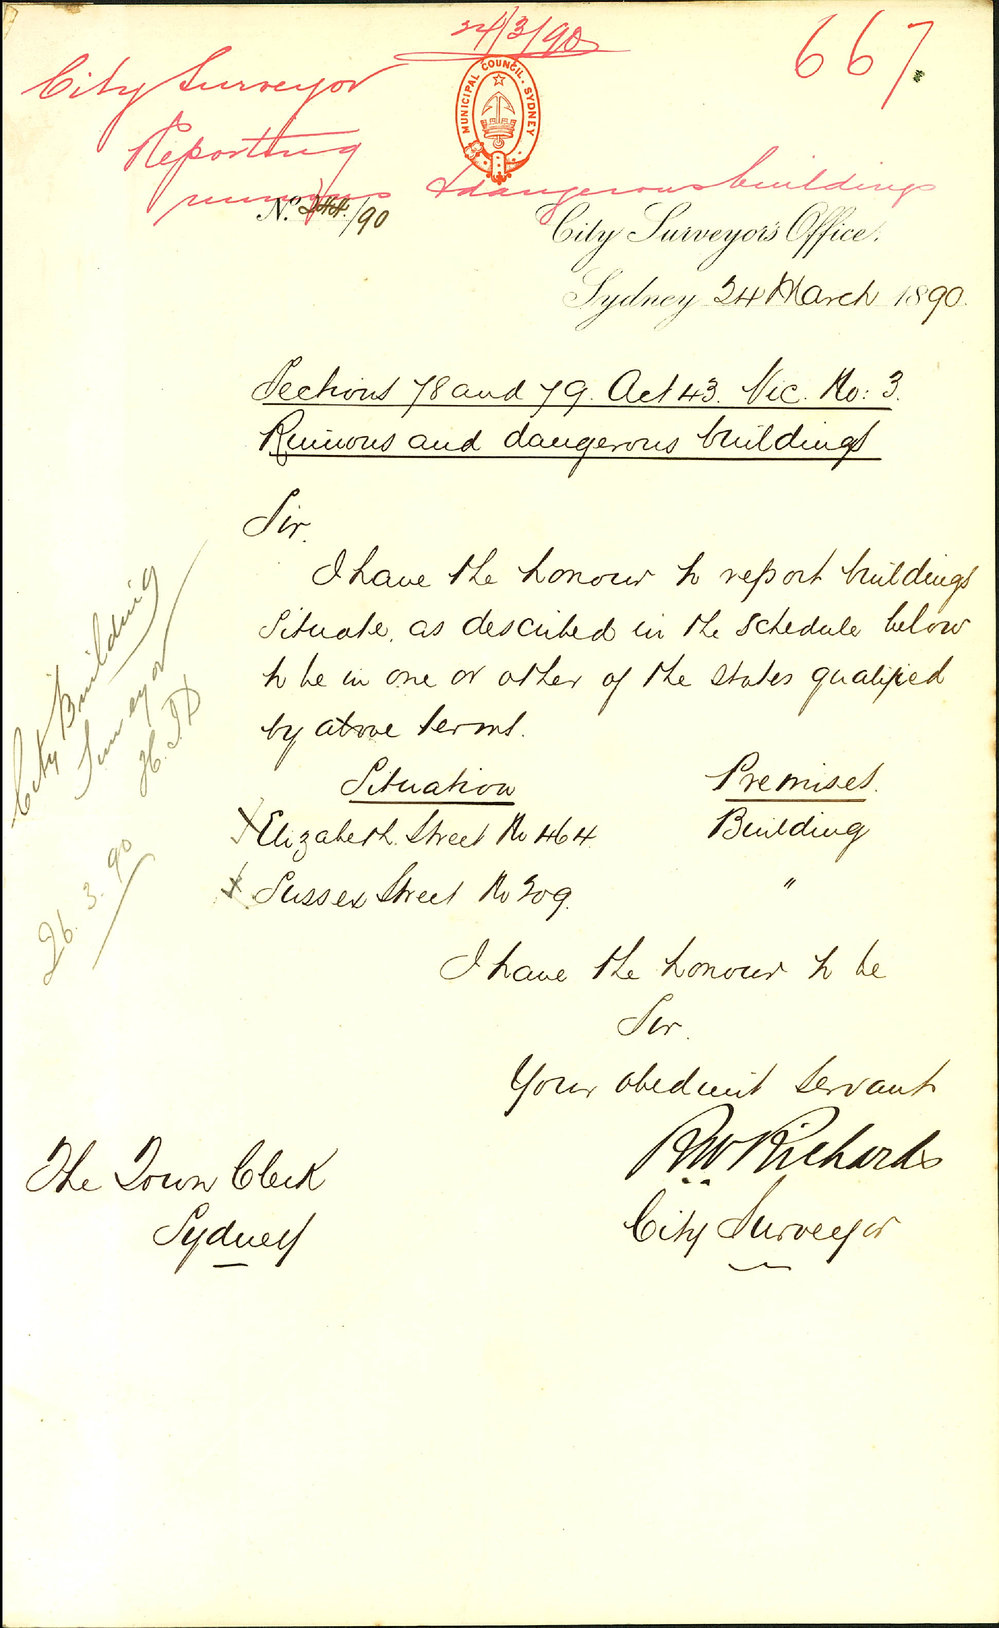 24/3/90
667
City Surveyor
Reporting
ruinous & dangerous buildings
MUNICIPAL COUNCIL. SYDNEY
No. 244/90
City Surveyor's Office.
Sydney 24 March 1890.
Sections 78 and 79. Act 43. Vic. No: 3.
Ruinous and dangerous buildings
Sir.
I have the honour to report buildings
situate, as described in the schedule below
to be in one or other of the states qualified
by above terms.
Situation Premises.
Elizabeth Street No 464 Building
Sussex Street No 209. "
I have the honour to be
Sir.
Your obedient servant
RW Richards
City Surveyor
The Town Clerk
Sydney
City Building
Surveyor
26.3.90